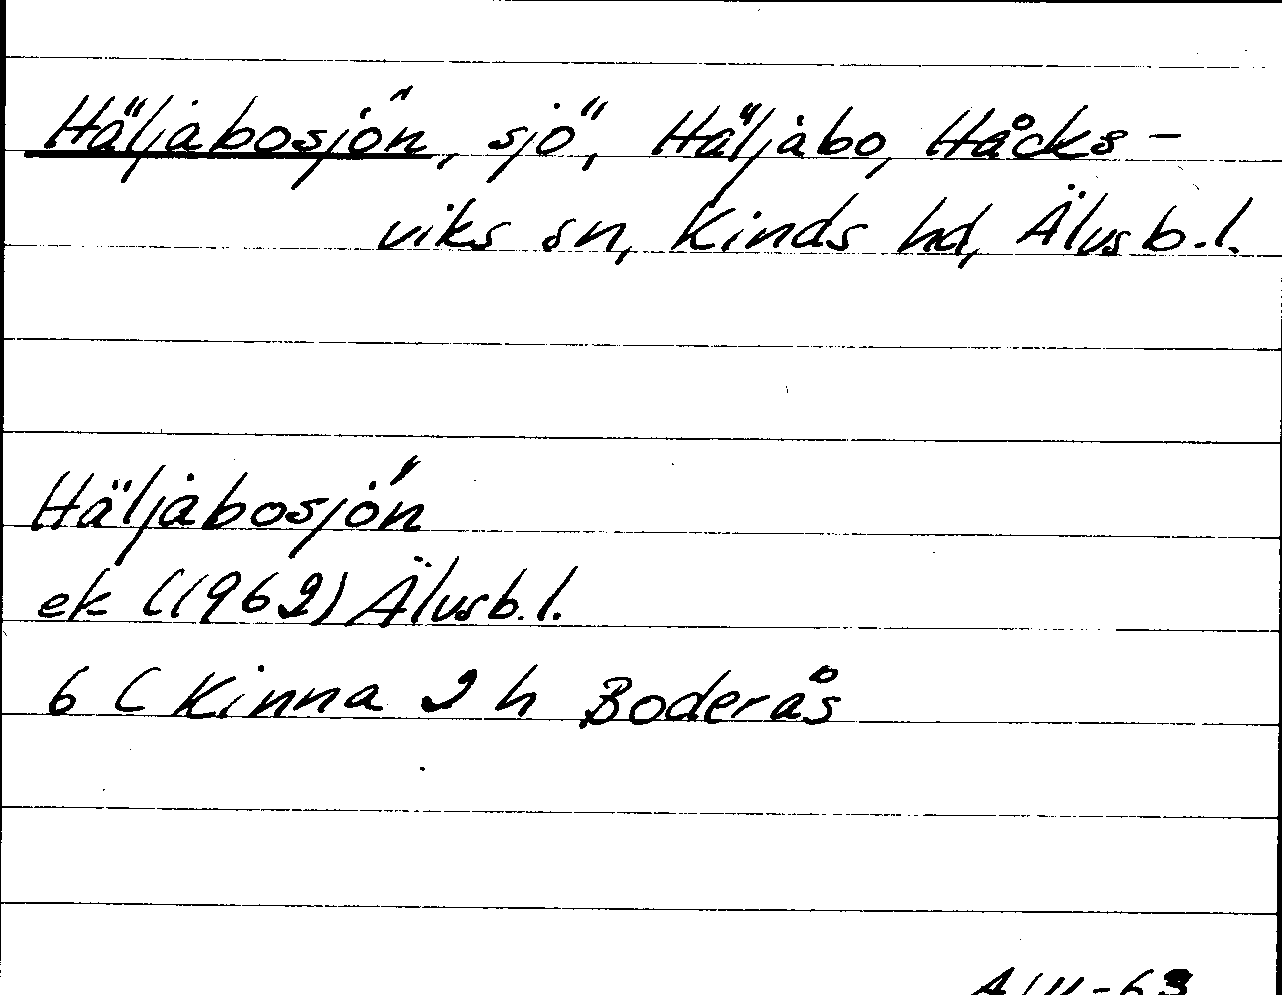 Häljabosjön, sjö, Häljabo, Håcks-
viks sn, Kinds hd, Älvsb.l.
Häljabosjön
ek (1962) Älvsb.l.
6 C Kinna 2 h Boderås